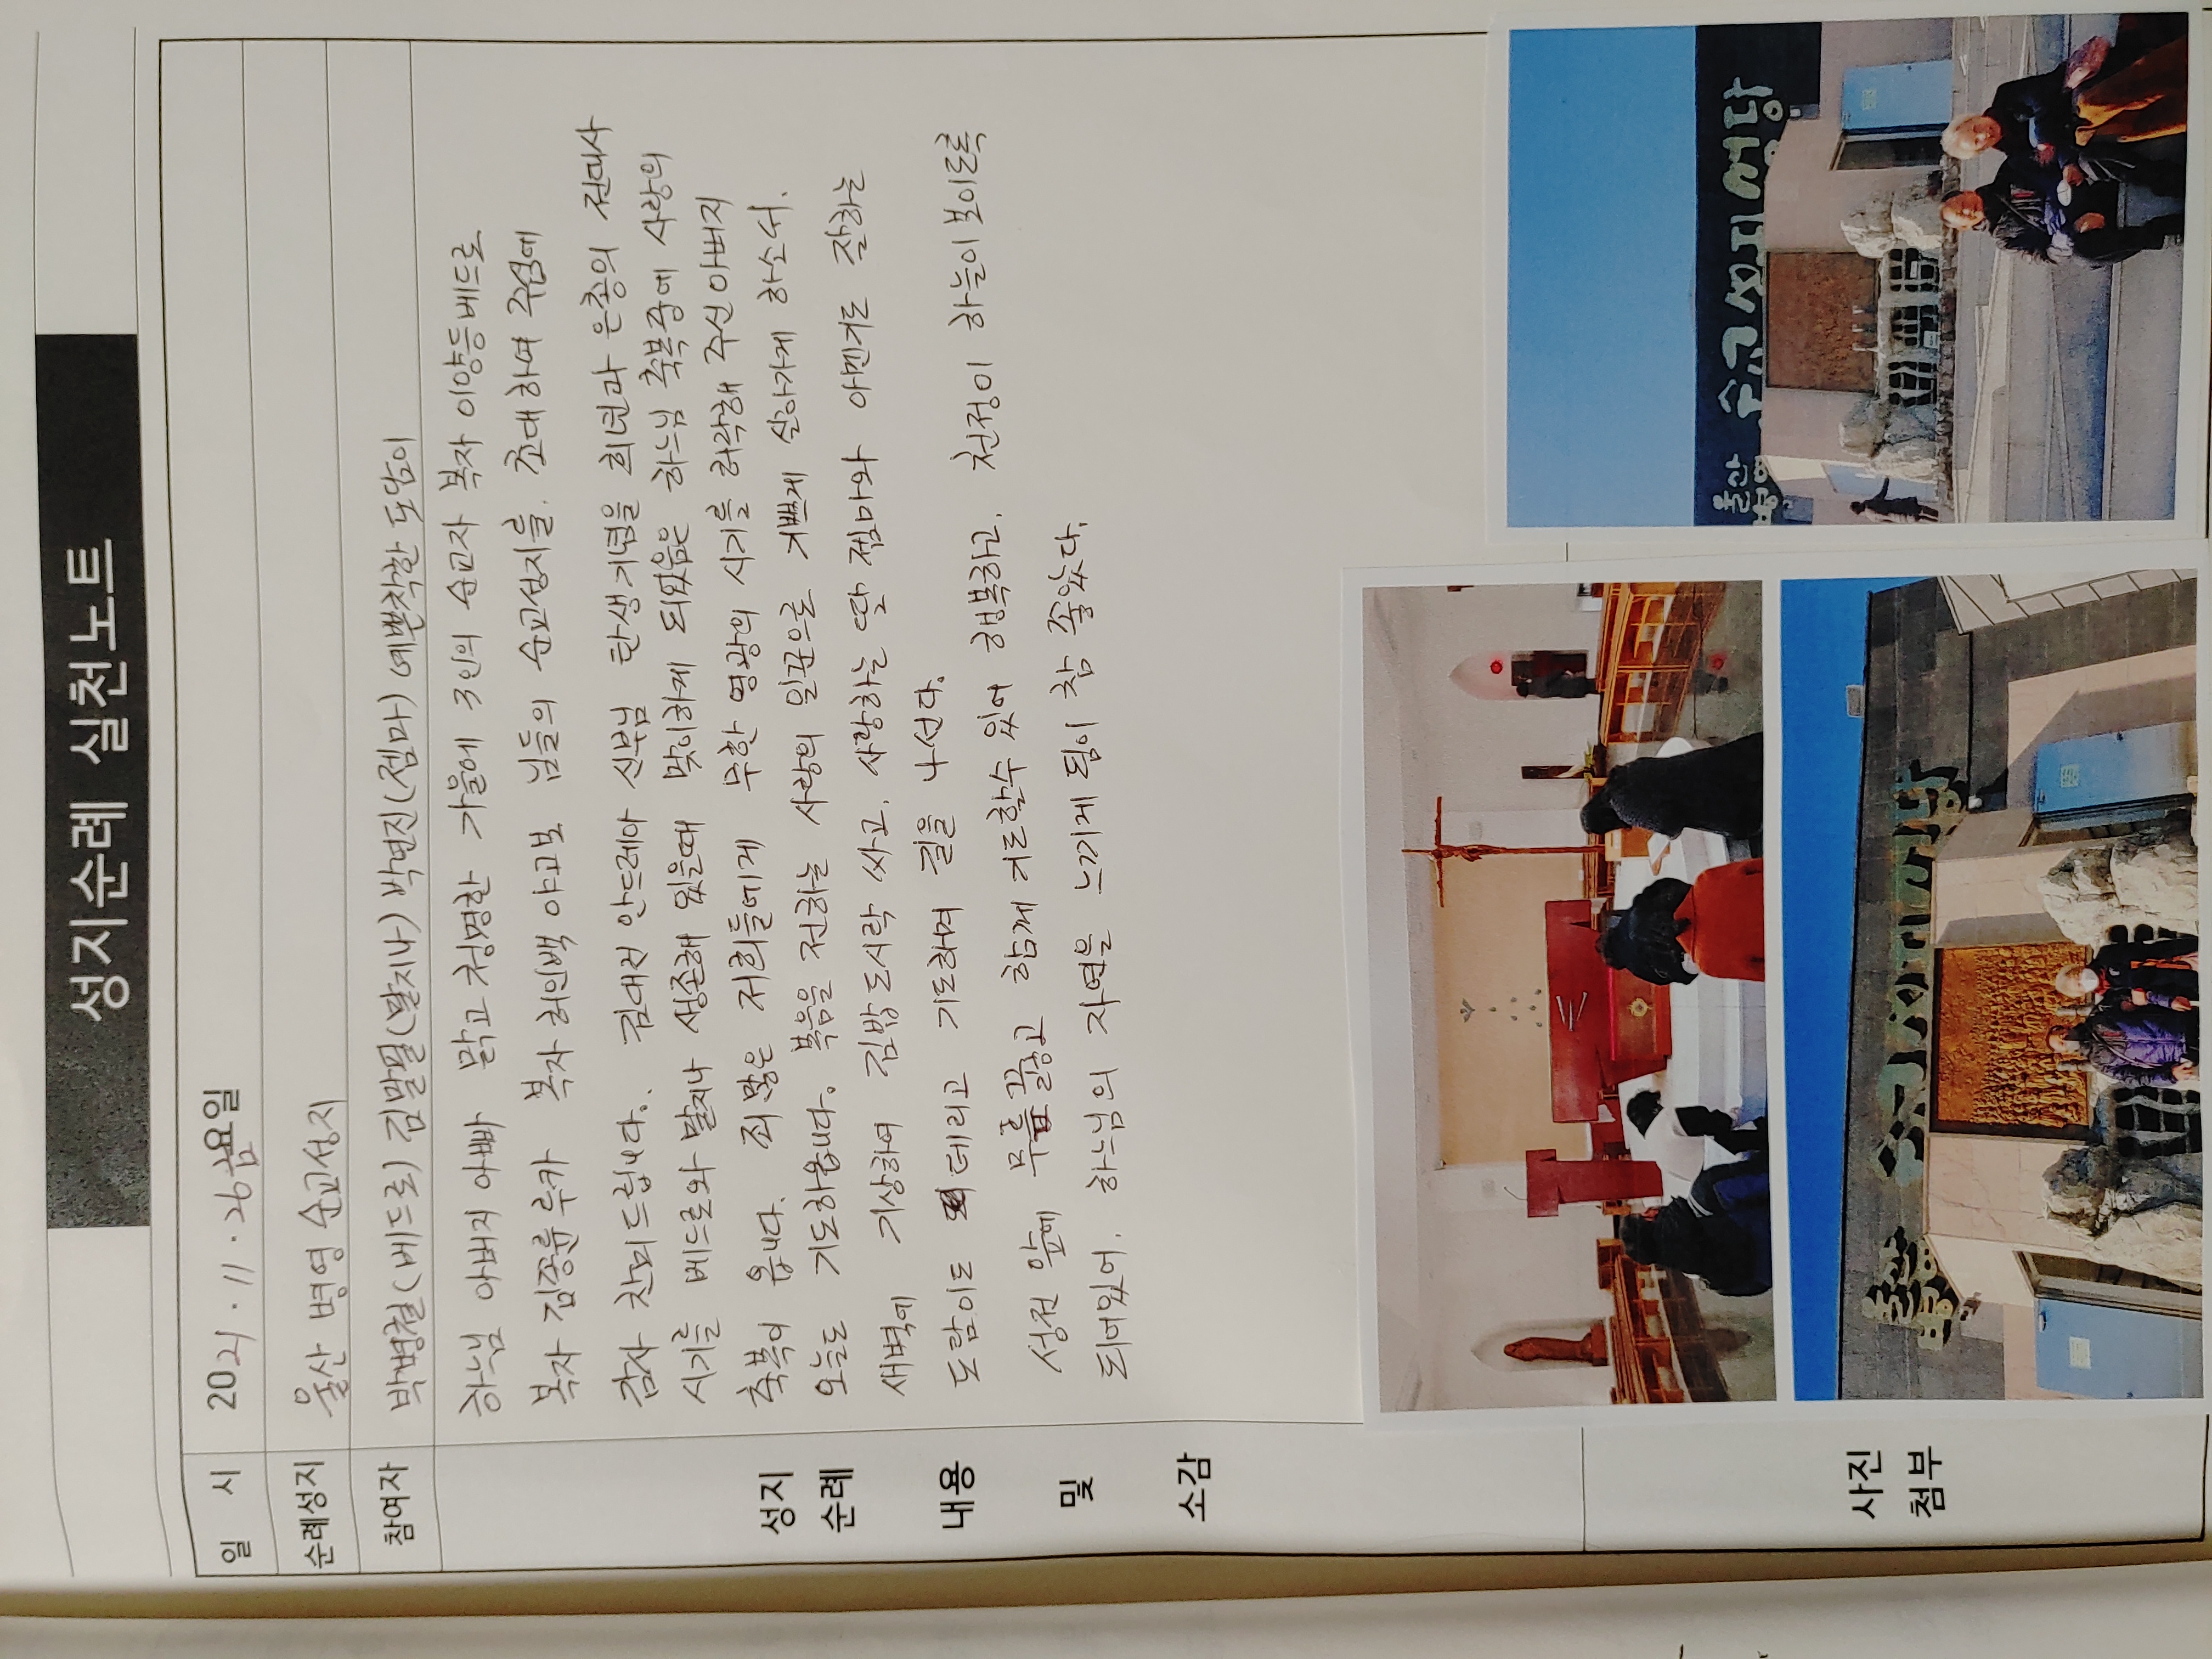 성지순례 실천노트
일 시 2021. 11. 26 금요일
순례성지 울산 병영 순교성지
참여자 박병철(베드로) 김말필(말지나) 박연진(젬마) 예쁜착한 도담이
하느님 아버지 아빠 맑고 청명한 가을에 3인의 순교자 복자 이양등베드로
복자 김종륜루카 복자 허인백 야고보 님들의 순교성지를. 초대하여 주심에
감사 찬미드립니다. 김대건 안드레아 신부님 탄생기념을 희년과 은총의 전대사
시기를 베드로와 말지나 생존해 있을때 맞이하게 되었음은 하느님 축복중에 사랑의
축복이 옵니다. 죄많은 저희들에게 무한 영광의 시기를 허락해 주신아버지
오늘도 기도하옵니다. 복음을 전하는 사랑의 일꾼으로 기쁘게 살아가게 하소서.
새벽에 기상하여 김밥도시락 싸고. 사랑하는 딸 젬마와 아멘기도 잘하는
도람이도 데리고 기도하며 길을 나선다.
성전 앞에 무릎꿇고 함께 기도할수있어 행복하고. 천정이 하늘이보이도록
되어있어. 하느님의 자연을 느끼게 됨이 참 좋았다.
성지
순례
내용
및
소감
사진
첨부
울산
병영
순교성지성당
울산
병영
순교성지성당